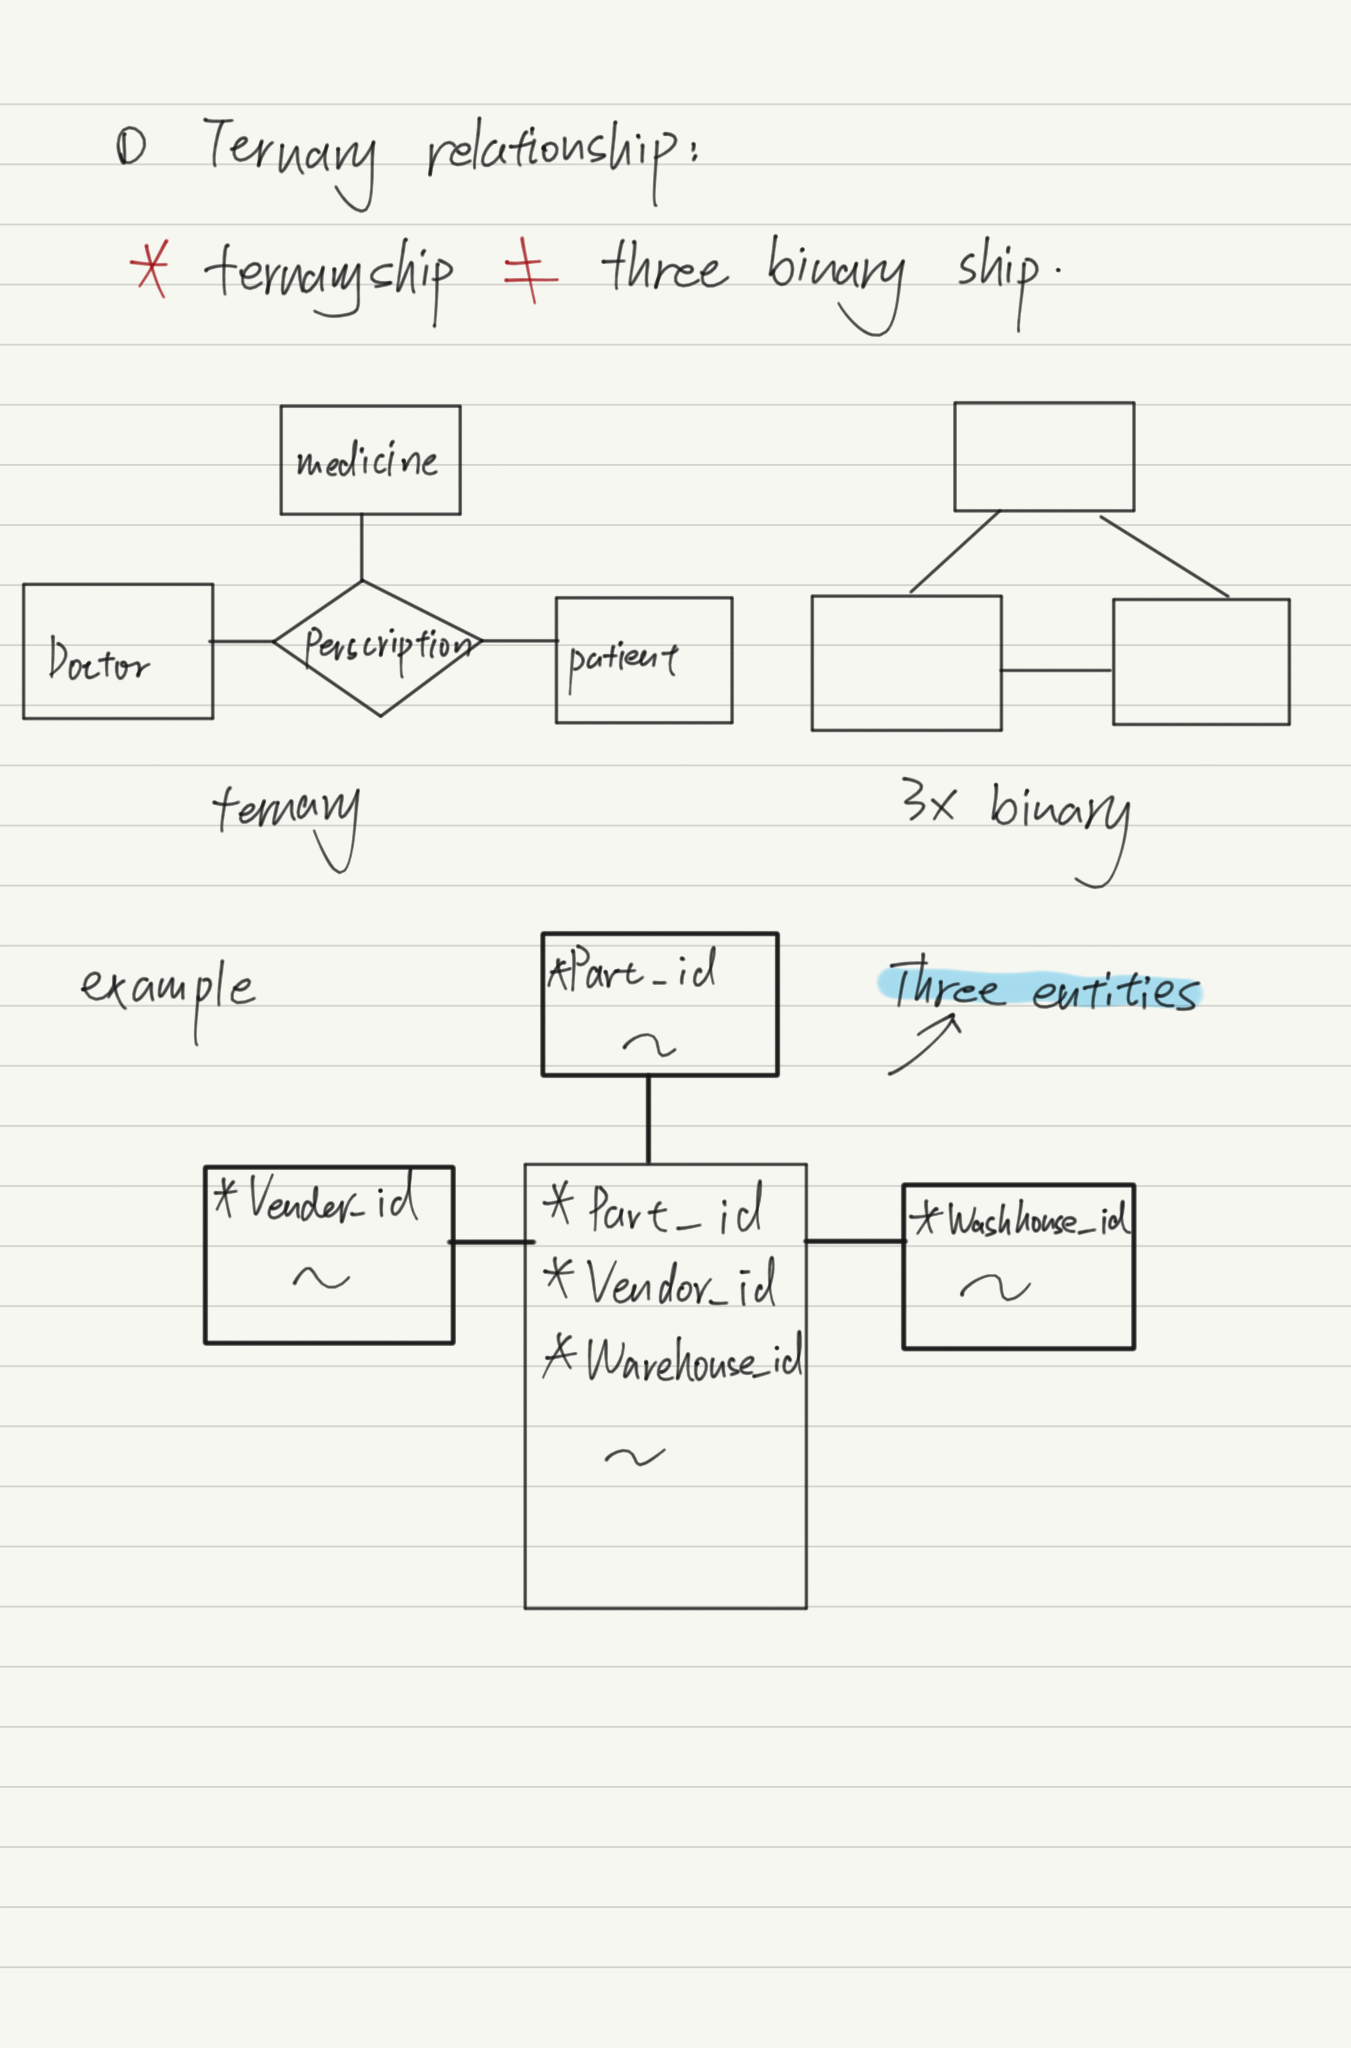 ① Ternary relationship:
* ternaryship ≠ three binary ship.
medicine
Doctor
Perscription
patient
ternary
3x binary
example
*Part_id
~
Three entities
*Vender_id
~
*Part_id
*Vendor_id
*Warehouse_id
~
*Washhouse_id
~